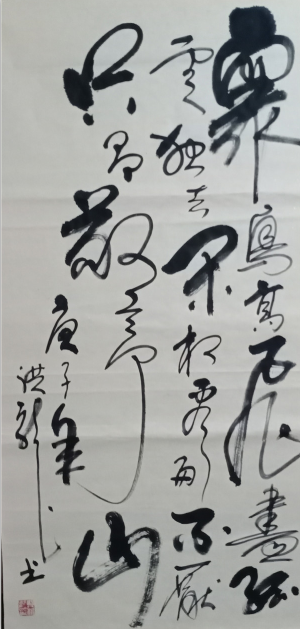 眾鳥高飛盡孤
雲獨去閑相看兩不厭
只有敬亭山
庚子年
洪书